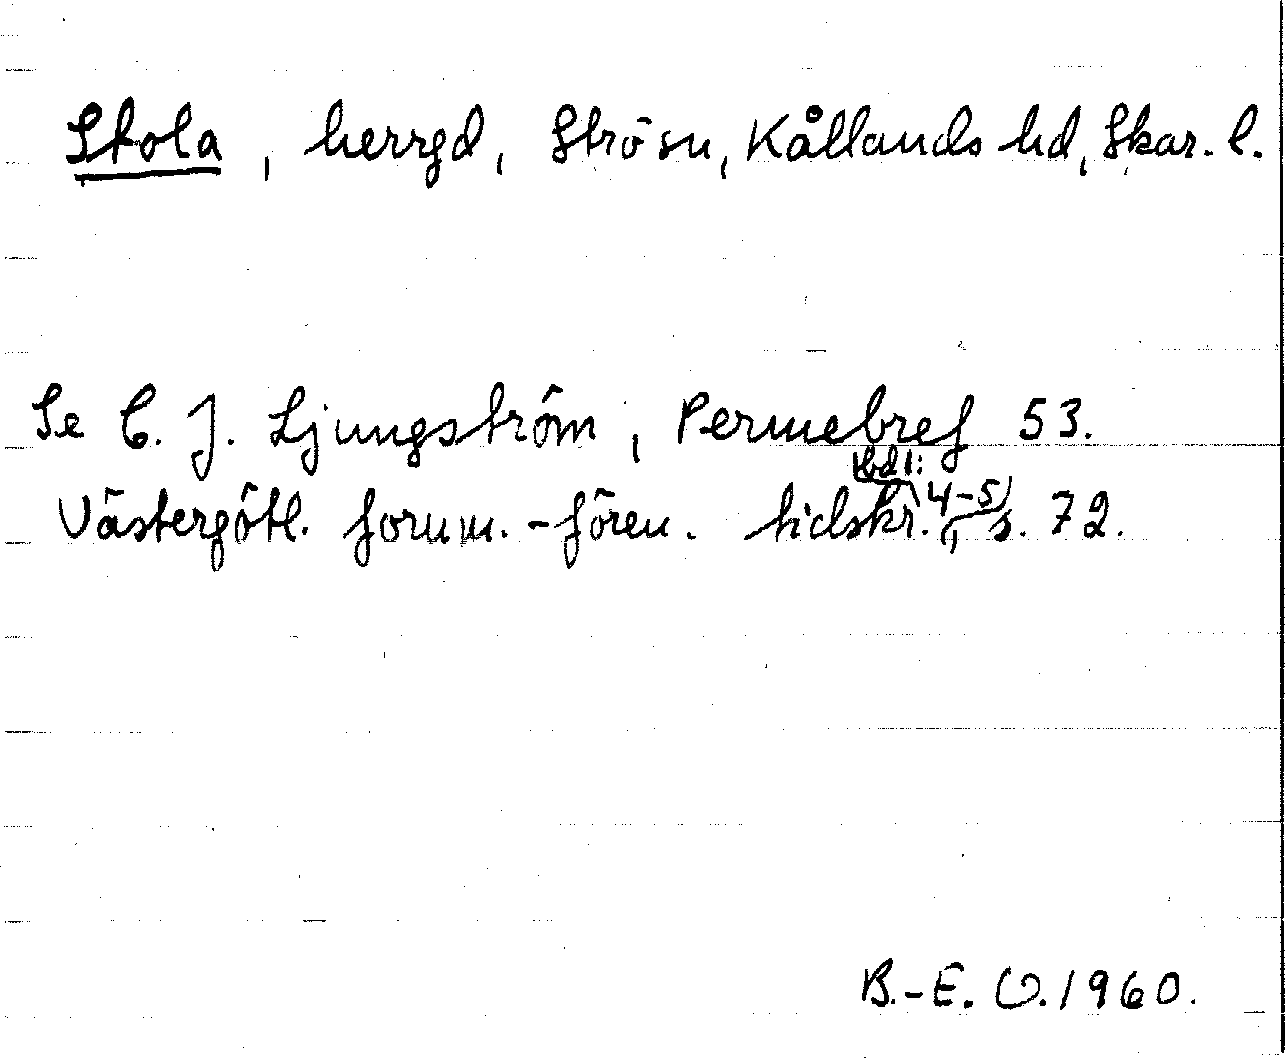 Stola, herrgd, Strö sn, Kållands hd, Skar. l.
Se C. J. Ljungström, Permebref 53.
Västergötl. fornm.-fören. tidskr. bd 1: 4-5, s. 72.
B.-E. O. 1960.